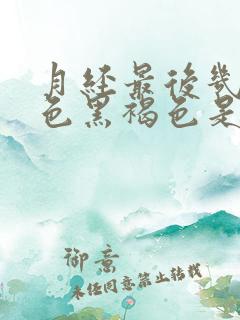 月经最後幾
色黑褐色是
御意
未经同意禁止转载